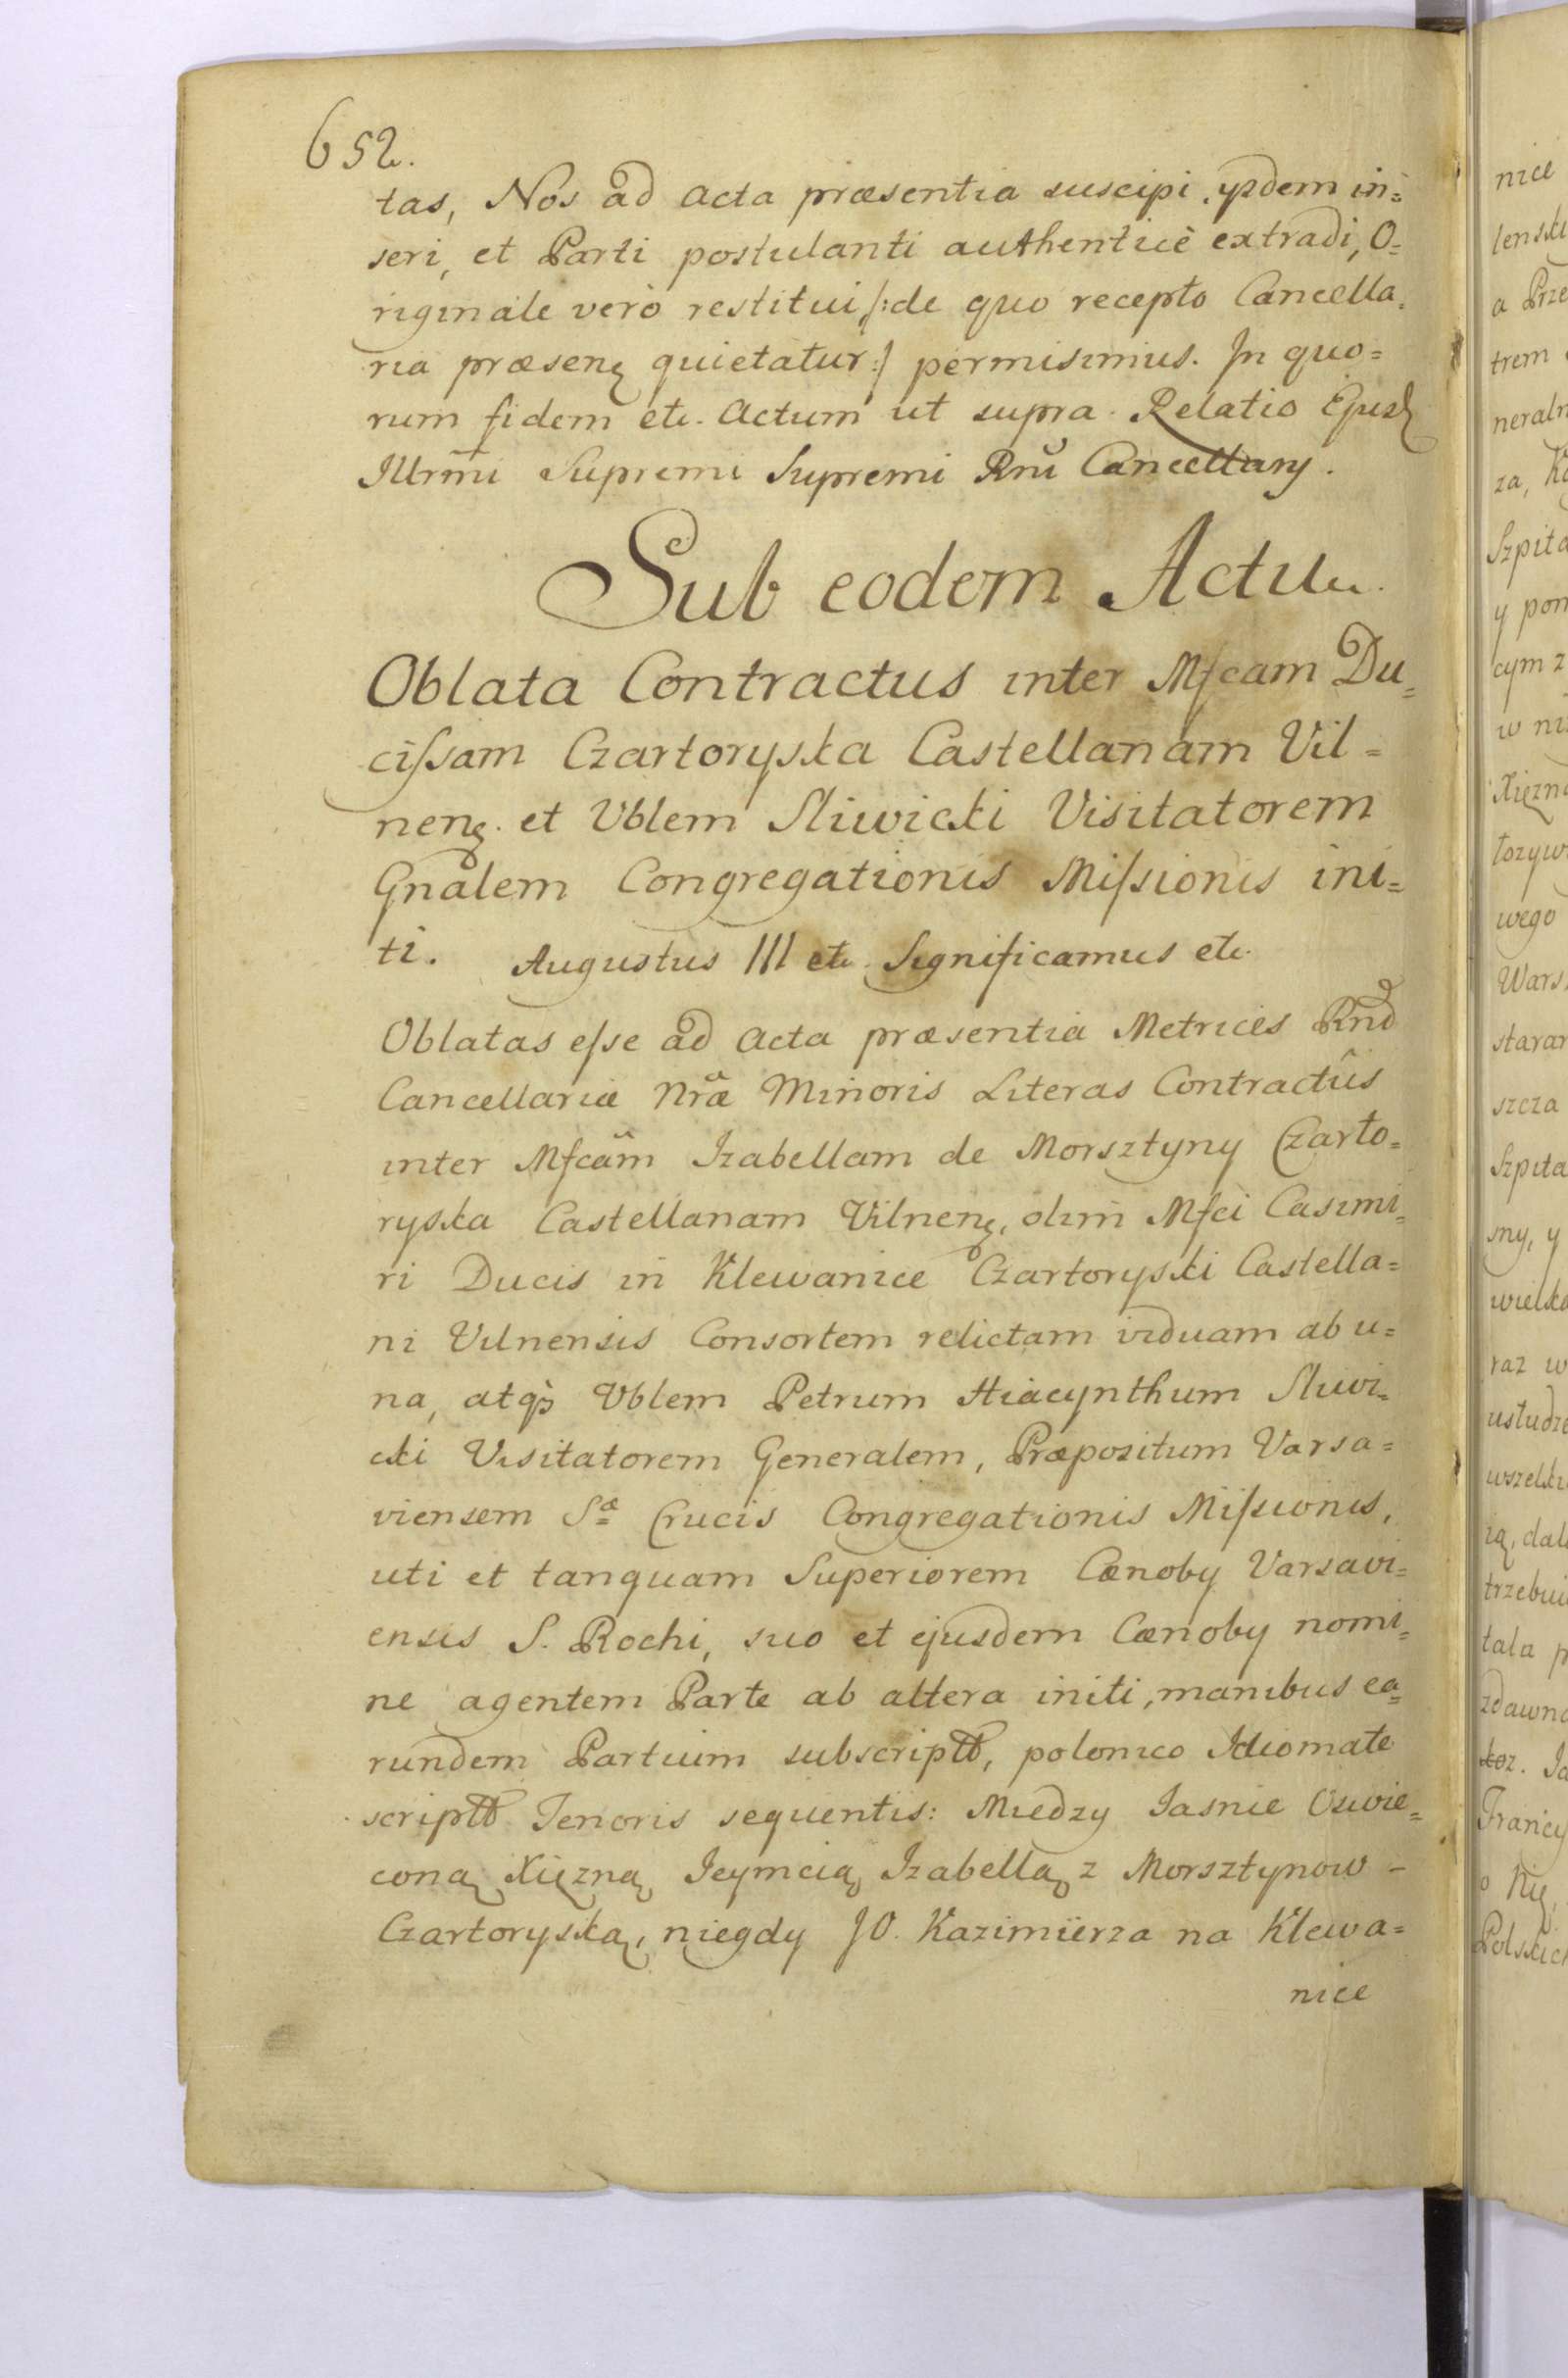 652.
tas, Nos ad Acta præsentia suscipi, ysdem in=
seri, et Parti postulanti authenticè extradi, O=
riginale verò restitui /:de quo recepto Cancella=
ria præsenz quietatur:/ permisimus. In quo=
rum fidem etc. Actum ut supra. Relatio Ejusd
Illrmi Supremi Supremi Rnĩ Cancellary.
Sub eodem Actu.
Oblata Contractus inter Mfcam Du=
cissam Czartoryska Castellanam Vil=
nenz. et Vblem Sliwicki Visitatorem
Gnalem Congregationis Missionis ini=
ti. Augustus III etc. Significamus etc.
Oblatas esse ad Acta præsentia Metrices Rnd
Cancellariæ Nræ Minoris Literas Contractûs
inter Mfcam Izabellam de Morsztyny Czarto=
ryska Castellanam Vilnenz, olim Mfci Casimi=
ri Ducis in Klewanice Czartoryski Castella=
ni Vilnensis Consortem relictam viduam ab u=
na, atq̀ Vblem Petrum Hiacynthum Sliwi=
cki Visitatorem Generalem, Præpositum Varsa=
viensem Sæ Crucis Congregationis Missionis,
uti et tanquam Superiorem Cænoby Varsavi=
ensis S. Rochi, suo et ejusdem Cænoby nomi=
ne agentem Parte ab altera initi, manibus ea=
rundem Partium subscriptt, polonico Idiomate
scriptt Tenoris sequentis: Miedzy Iasnie Oswie=
coną Xięzną Ieymcią Izabellą z Morsztynow -
Czartoryską, niegdy JO. Kazimierza na Klewa=
nice
nice
lensk
a Prze
trem
neraln
za, K
Szpita
y pom
cym z
w ni
Xiezn
łozyw
wego
Wars
staran
szcza
Szpita
sny, y
wielk
raz w
usłudze
wszelk
ią, dal
trzebui
tala p
zdawna
Francy
o Xię
Polskich